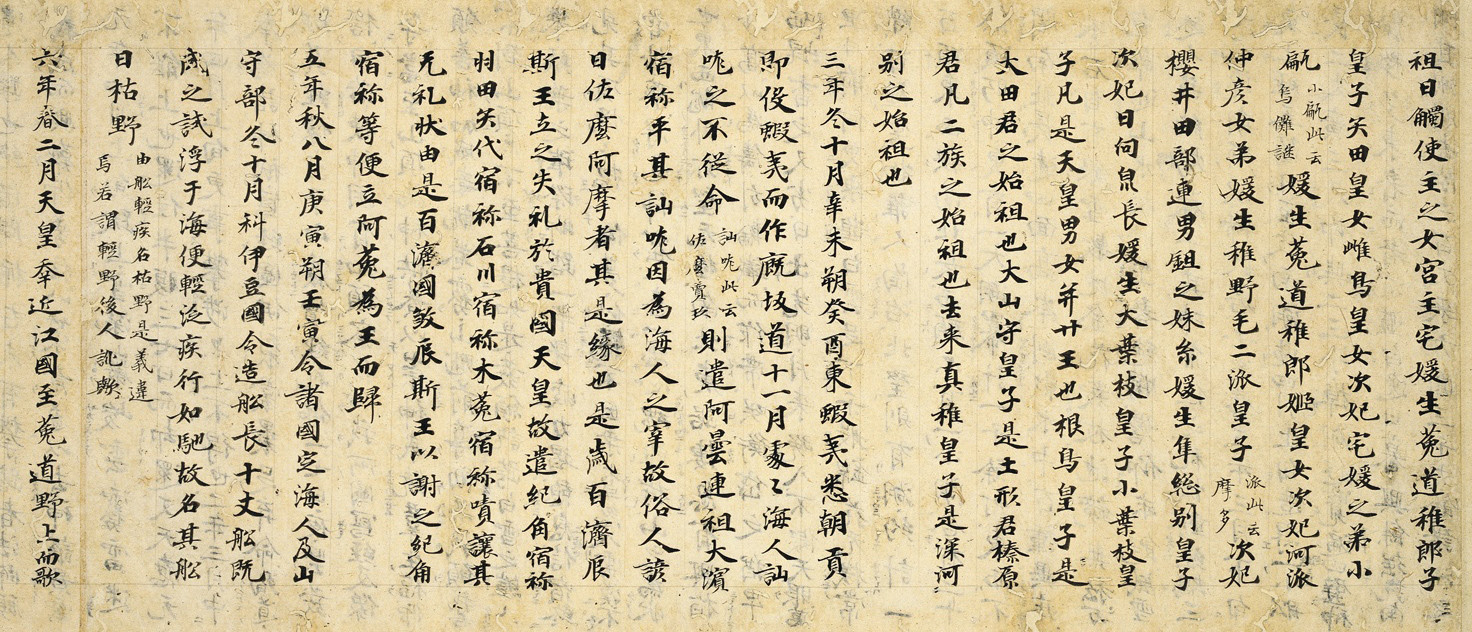 祖日觸使主之女宮主宅媛生菟道稚郎子
皇子矢田皇女雌鳥皇女次妃宅媛之弟小
甂小甂此云烏儺謎媛生菟道稚郎姬皇女次妃河派
仲彥女弟媛生稚野毛二派皇子派此云摩多次妃
櫻井田部連男鉏之妹糸媛生隼総別皇子
次妃日向泉長媛生大葉枝皇子小葉枝皇
子凡是天皇男女并廿王也根鳥皇子是
大田君之始祖也大山守皇子是土形君榛原
君凡二族之始祖也去来真稚皇子是深河
别之始祖也
三年冬十月辛未朔癸酉東蝦夷悉朝貢
即伇蝦夷而作廐坂道十一月處〻海人訕
哤之不從命訕哤此云佐麼賣玖則遣阿曇連祖大濱
宿祢平其訕哤因為海人之宰故俗人諺
曰佐麼阿摩者其是緣也是歲百濟辰
斯王立之失礼於貴國天皇故遣紀角宿祢
羽田矢代宿祢石川宿祢木菟宿祢嘖讓其
无礼狀由是百濟國敘辰斯王以謝之紀角
宿祢等便立阿菟為王而歸
五年秋八月庚寅朔壬寅令諸國定海人及山
守部冬十月科伊豆國令造舩長十丈舩既
成之試浮于海便輕泛疾行如馳故名其舩
曰枯野由舩輕疾名枯野是義違焉若謂輕野後人訛歟
六年春二月天皇幸近江國至菟道野上而歌